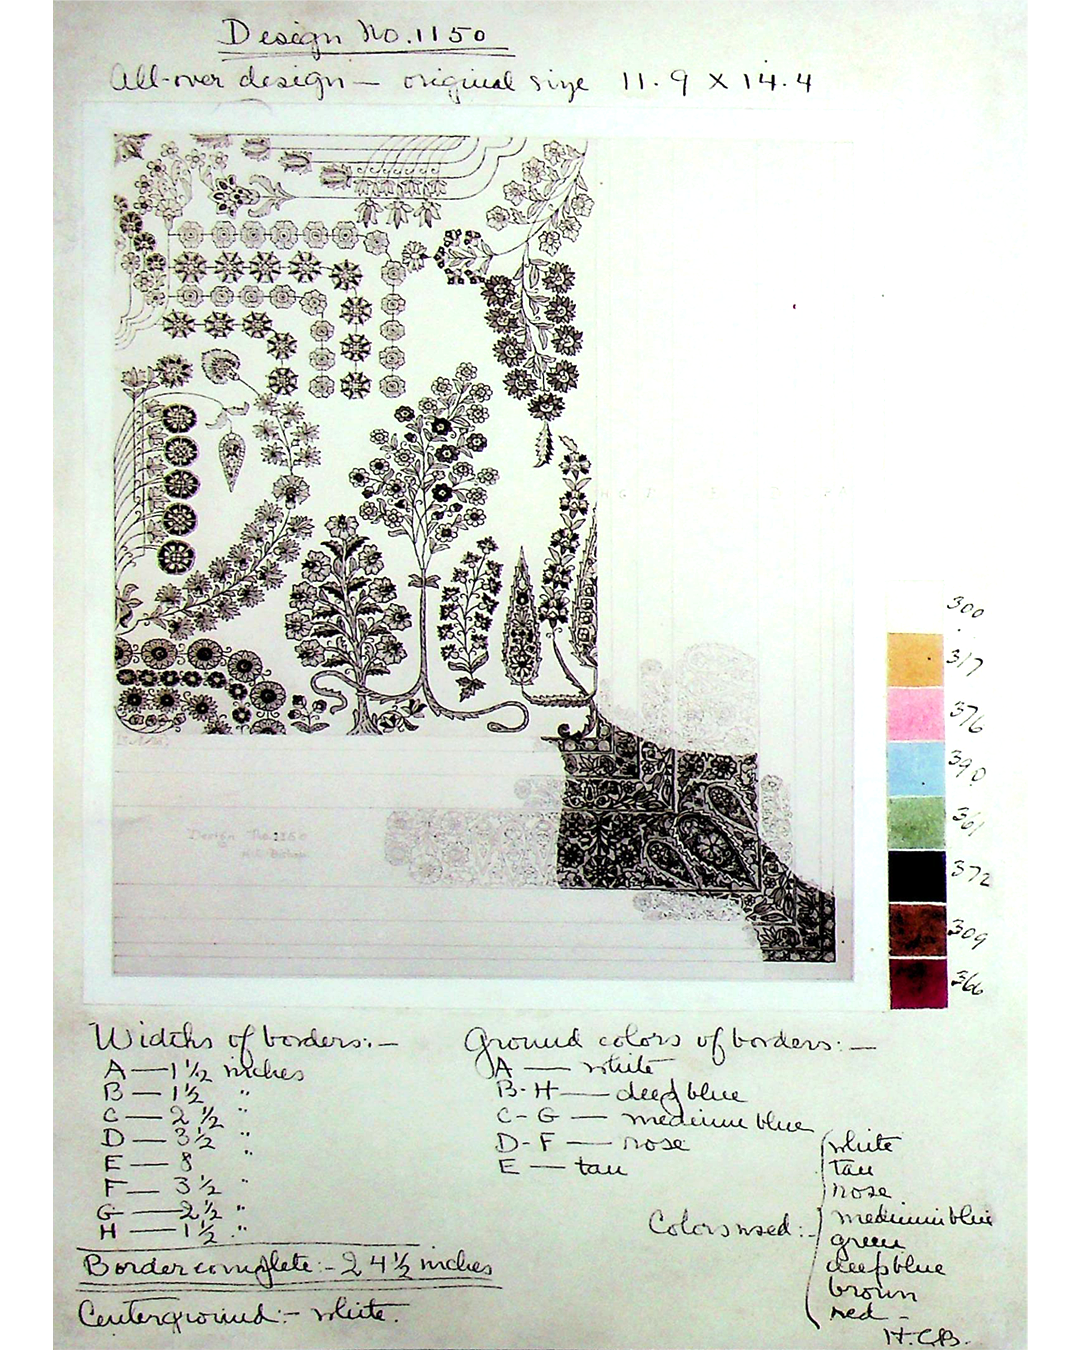 Design No. 1150
All-over design — original size 11.9 X 14.4
Design No. 1150
300
317
376
390
361
372
309
366
Widths of borders:-
A — 1 1/2 inches
B — 1 1/2 "
C — 2 1/2 "
D — 3 1/2 "
E — 8 "
F — 3 1/2 "
G — 2 1/2 "
H — 1 1/2 "
Border complete:- 24 1/2 inches
Centerground:- white.
Ground colors of borders:-
A — white
B-H — deep blue
C-G — medium blue
D-F — rose
E — tan
Colors used:-
white
tan
rose
medium blue
green
deep blue
brown
red -
H.C.B.